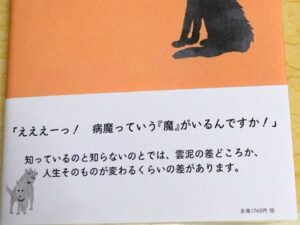 「えええーっ! 病魔っていう『魔』がいるんですか!」
知っているのと知らないのとでは、雲泥の差どころか、
人生そのものが変わるくらいの差があります。
定価1760円